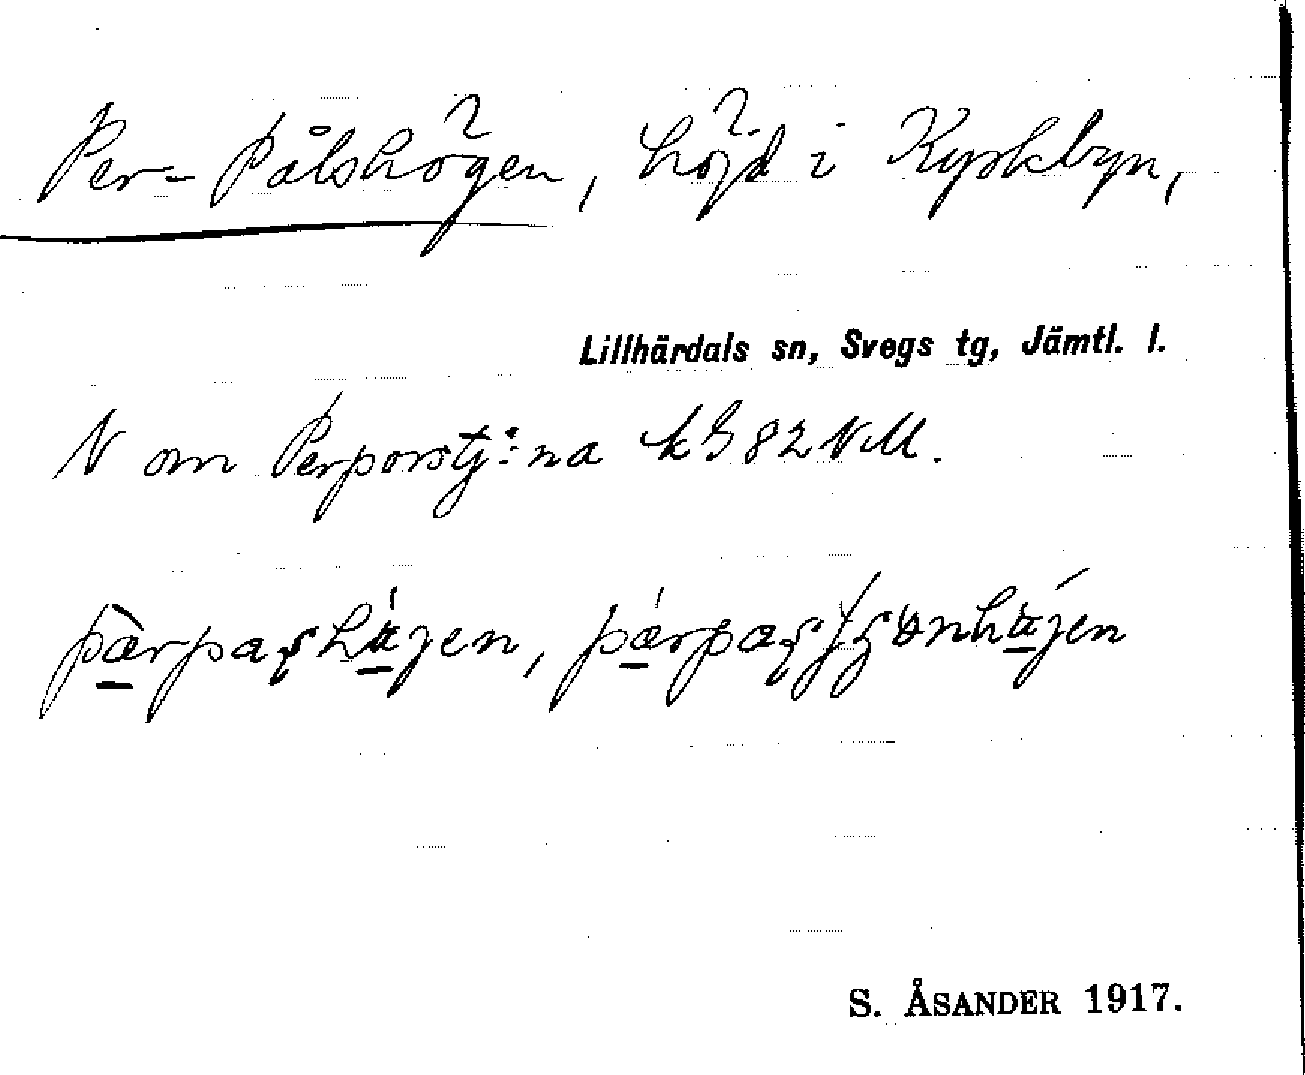 Per-Pålshögen, höjd i Kyrkbyn,
Lillhärdals sn, Svegs tg, Jämtl. l.
N om Perporstj:na kG 82 NM.
pærpaʂhäjen, 
S. ÅSANDER 1917.